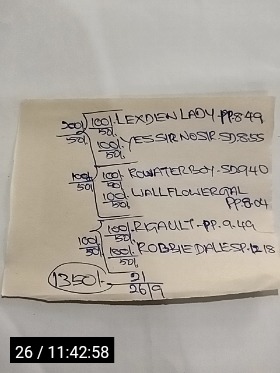 200/ 100/. LEXDEN LADY. PP. 8.49
50/. 50/. YESSIRNOSIR. SD. 8.55
100/.
50/.
100/. 100/. ROWATERBOY. SD 9.40
50/. 50/.
100/. WALLFLOWERGAL
50/. PP. 8.04
100/. RIGAULT. PP. 9.49
100/. 50/.
50/. 100/. ROBBIEDALE SP. 12.18
50/.
1350/ 21
26/9
26 / 11:42:58